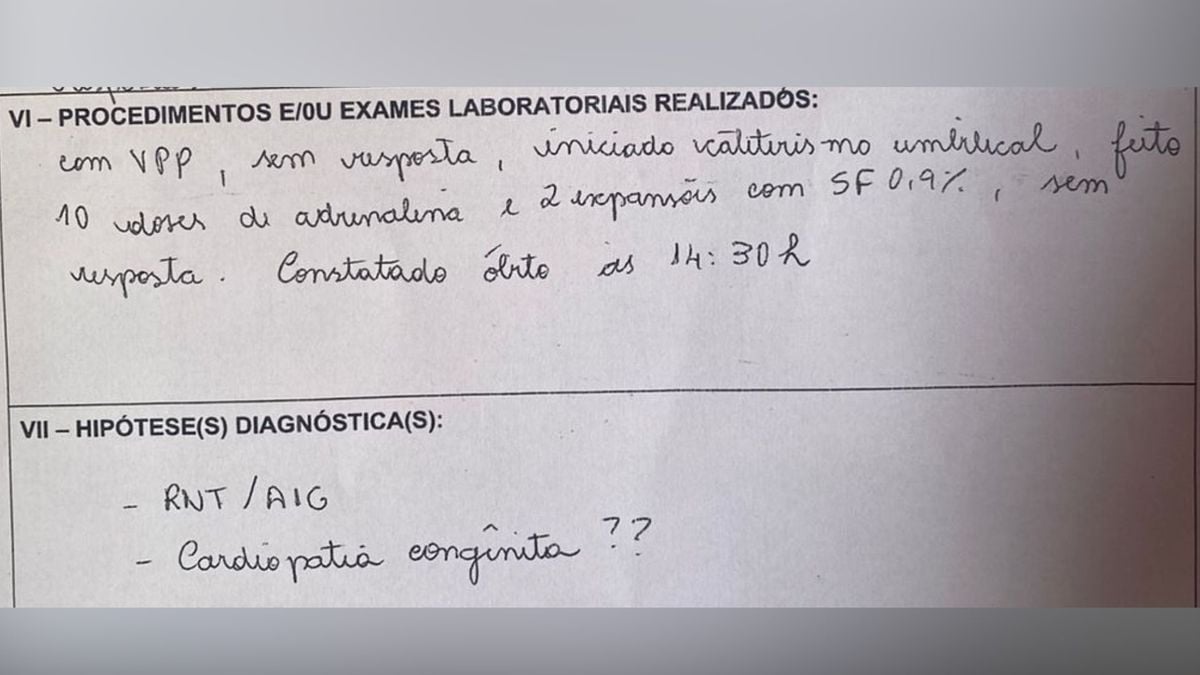 VI – PROCEDIMENTOS E/0U EXAMES LABORATORIAIS REALIZADOS:
com VPP, sem resposta, iniciado cateterismo umbilical, feito
10 doses de adrenalina e 2 expansões com SF 0,9%, sem
resposta. Constatado óbito às 14:30h
VII – HIPÓTESE(S) DIAGNÓSTICA(S):
- RNT/AIG
- Cardiopatia congênita ??